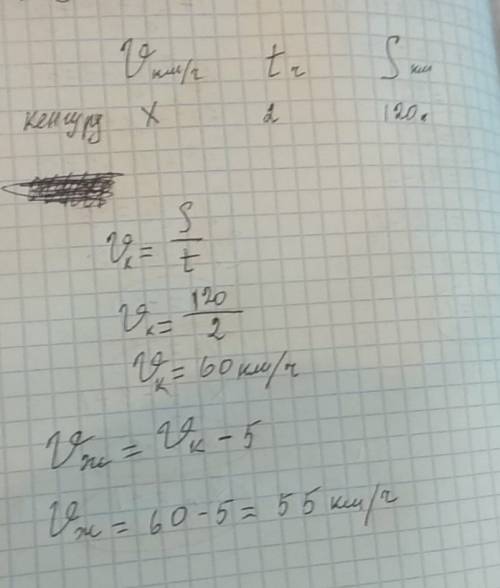 V км/ч t ч S км
кенгуру х 2 120.
Vк = S/t
Vк = 120/2
Vк = 60 км/ч
Vж = Vк - 5
Vж = 60 - 5 = 55 км/ч